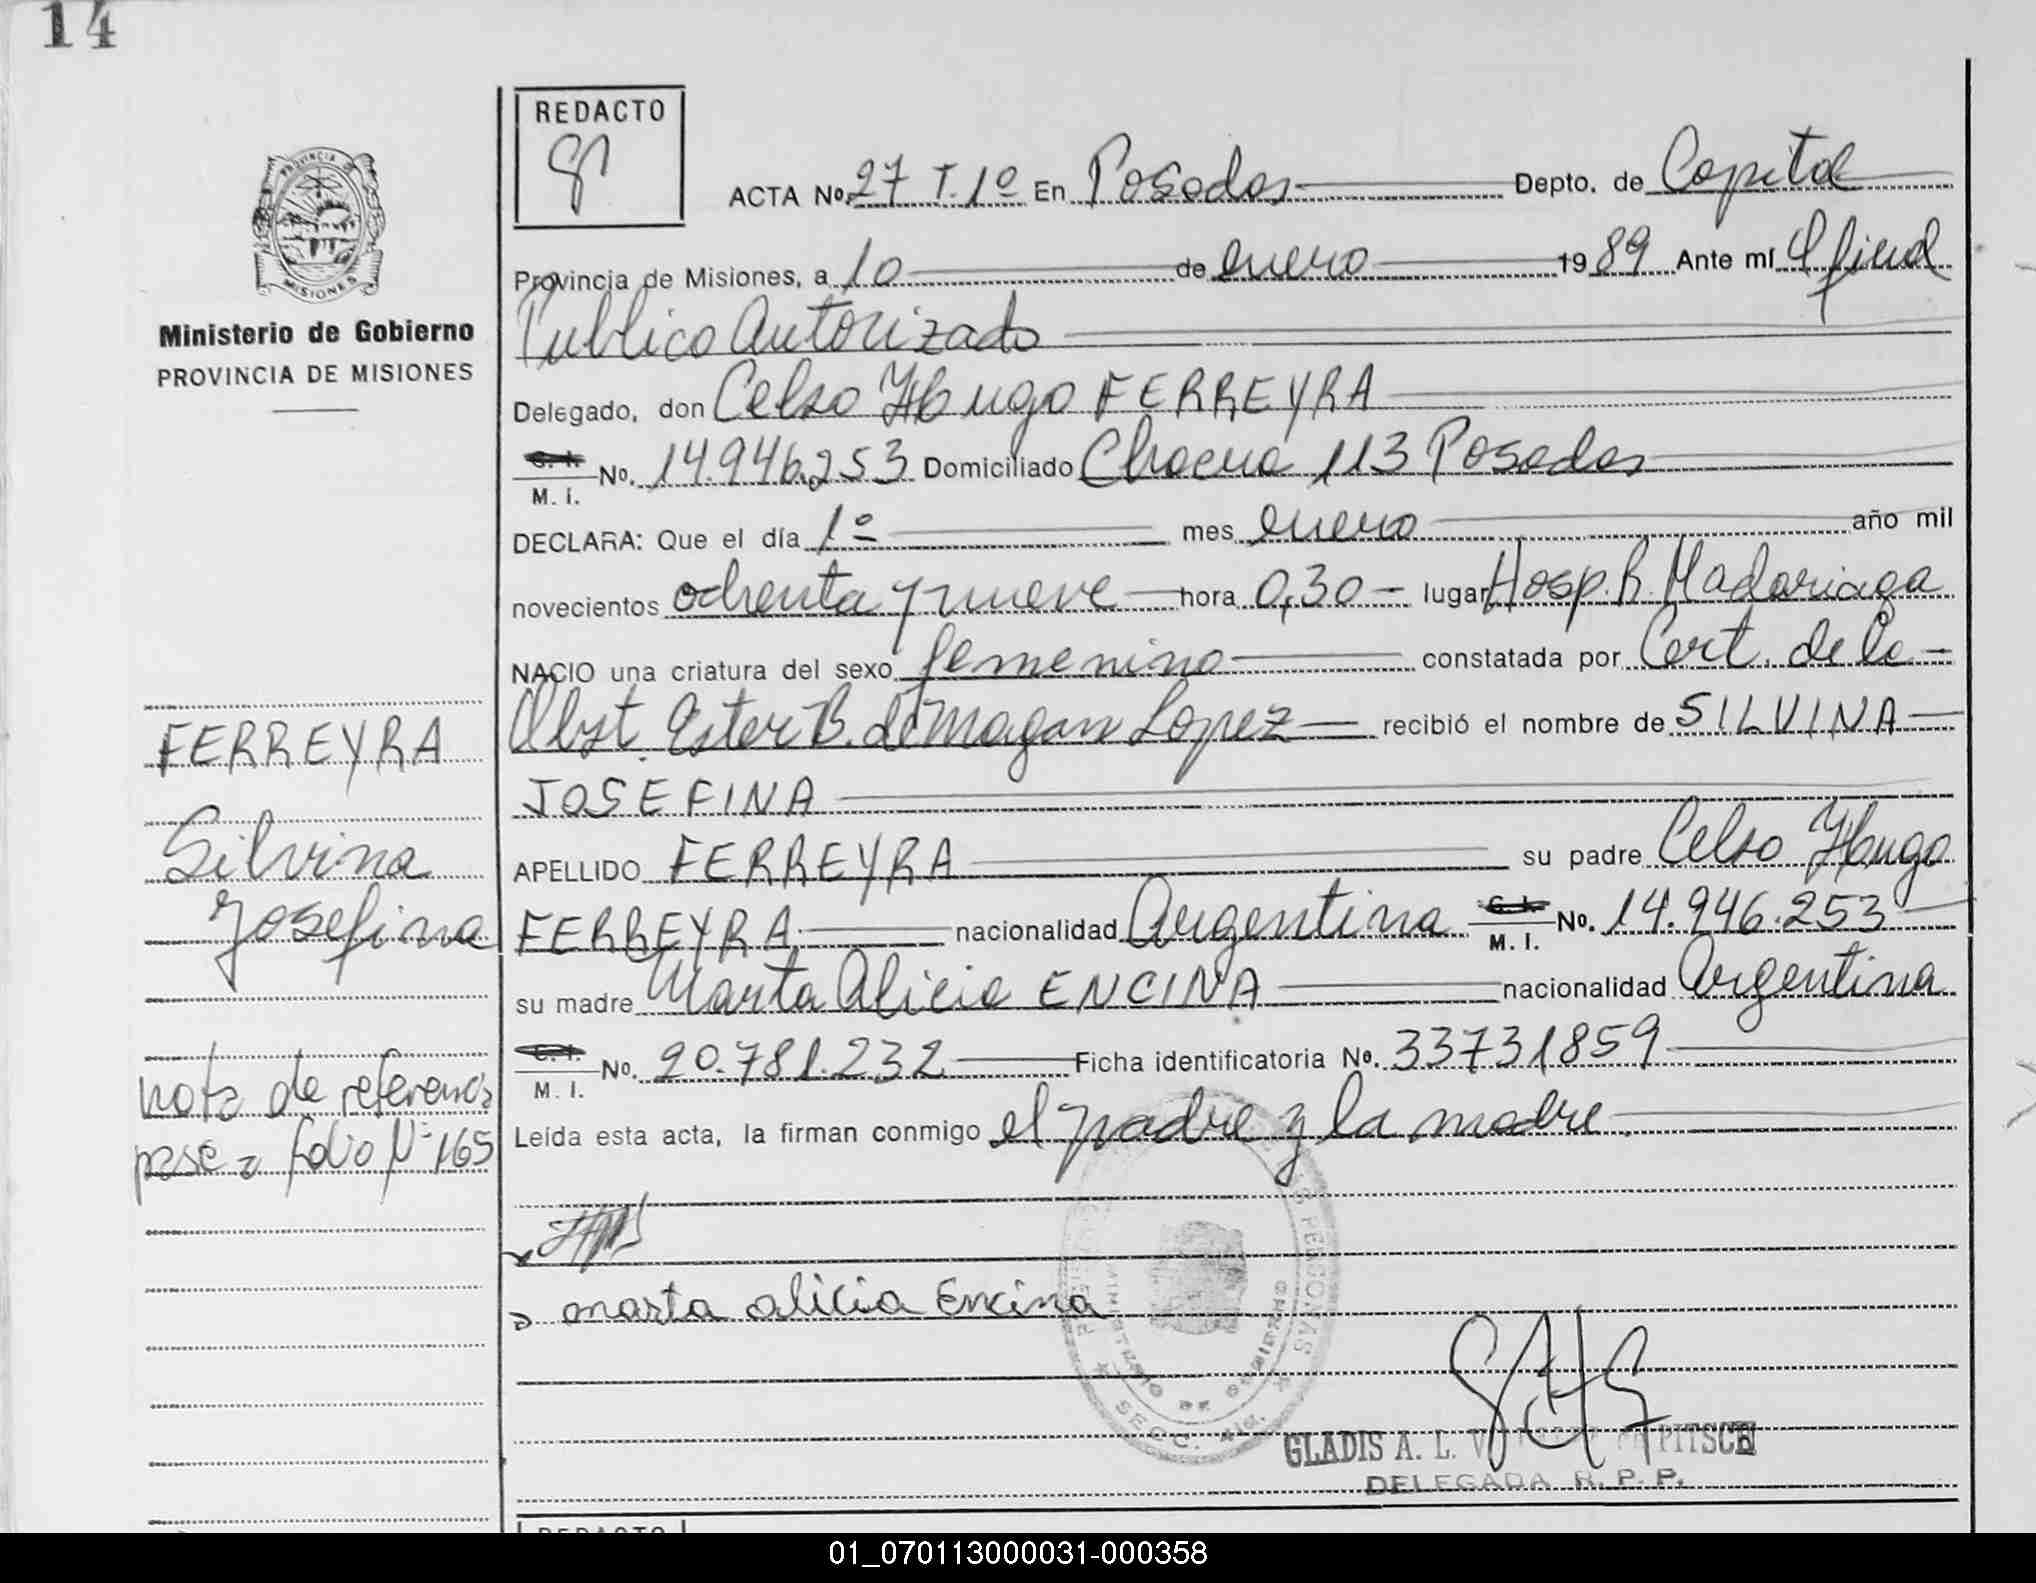 14
REDACTO
ACTA Nº 27 T.1º En Posadas Depto. de Capital
Provincia de Misiones, a 10 de enero 1989 Ante mí Oficial
Publico Autorizado
Delegado, don Celso Hugo FERREYRA
C. I. No. 14.946.253 Domiciliado 113 Posadas
M. I.
DECLARA: Que el día 1º mes enero año mil
novecientos ochenta y nueve hora 0,30 lugar Hosp. R. Madariaga
NACIO una criatura del sexo femenino constatada por Cert. de la
Obst. Ester B. de Magan Lopez recibió el nombre de SILVINA
JOSEFINA
APELLIDO FERREYRA su padre Celso Hugo
FERREYRA nacionalidad Argentina C. I. No. 14.946.253
M. I.
su madre Marta Alicia ENCINA nacionalidad Argentina
C. I. No. 20.781.232 Ficha identificatoria No. 33731859
M. I.
Leída esta acta, la firman conmigo el padre y la madre
marta alicia Encina
GLADIS A. L. PITSCH
DELEGADA R. P. P.
PROVINCIA DE
MISIONES
Ministerio de Gobierno
PROVINCIA DE MISIONES
FERREYRA
Silvina
Josefina
nota de referencia
pase a folio Nº 165
PERSONAS
MINISTERIO DE GOBIERNO
SECC.
REDACTO
01_070113000031-000358